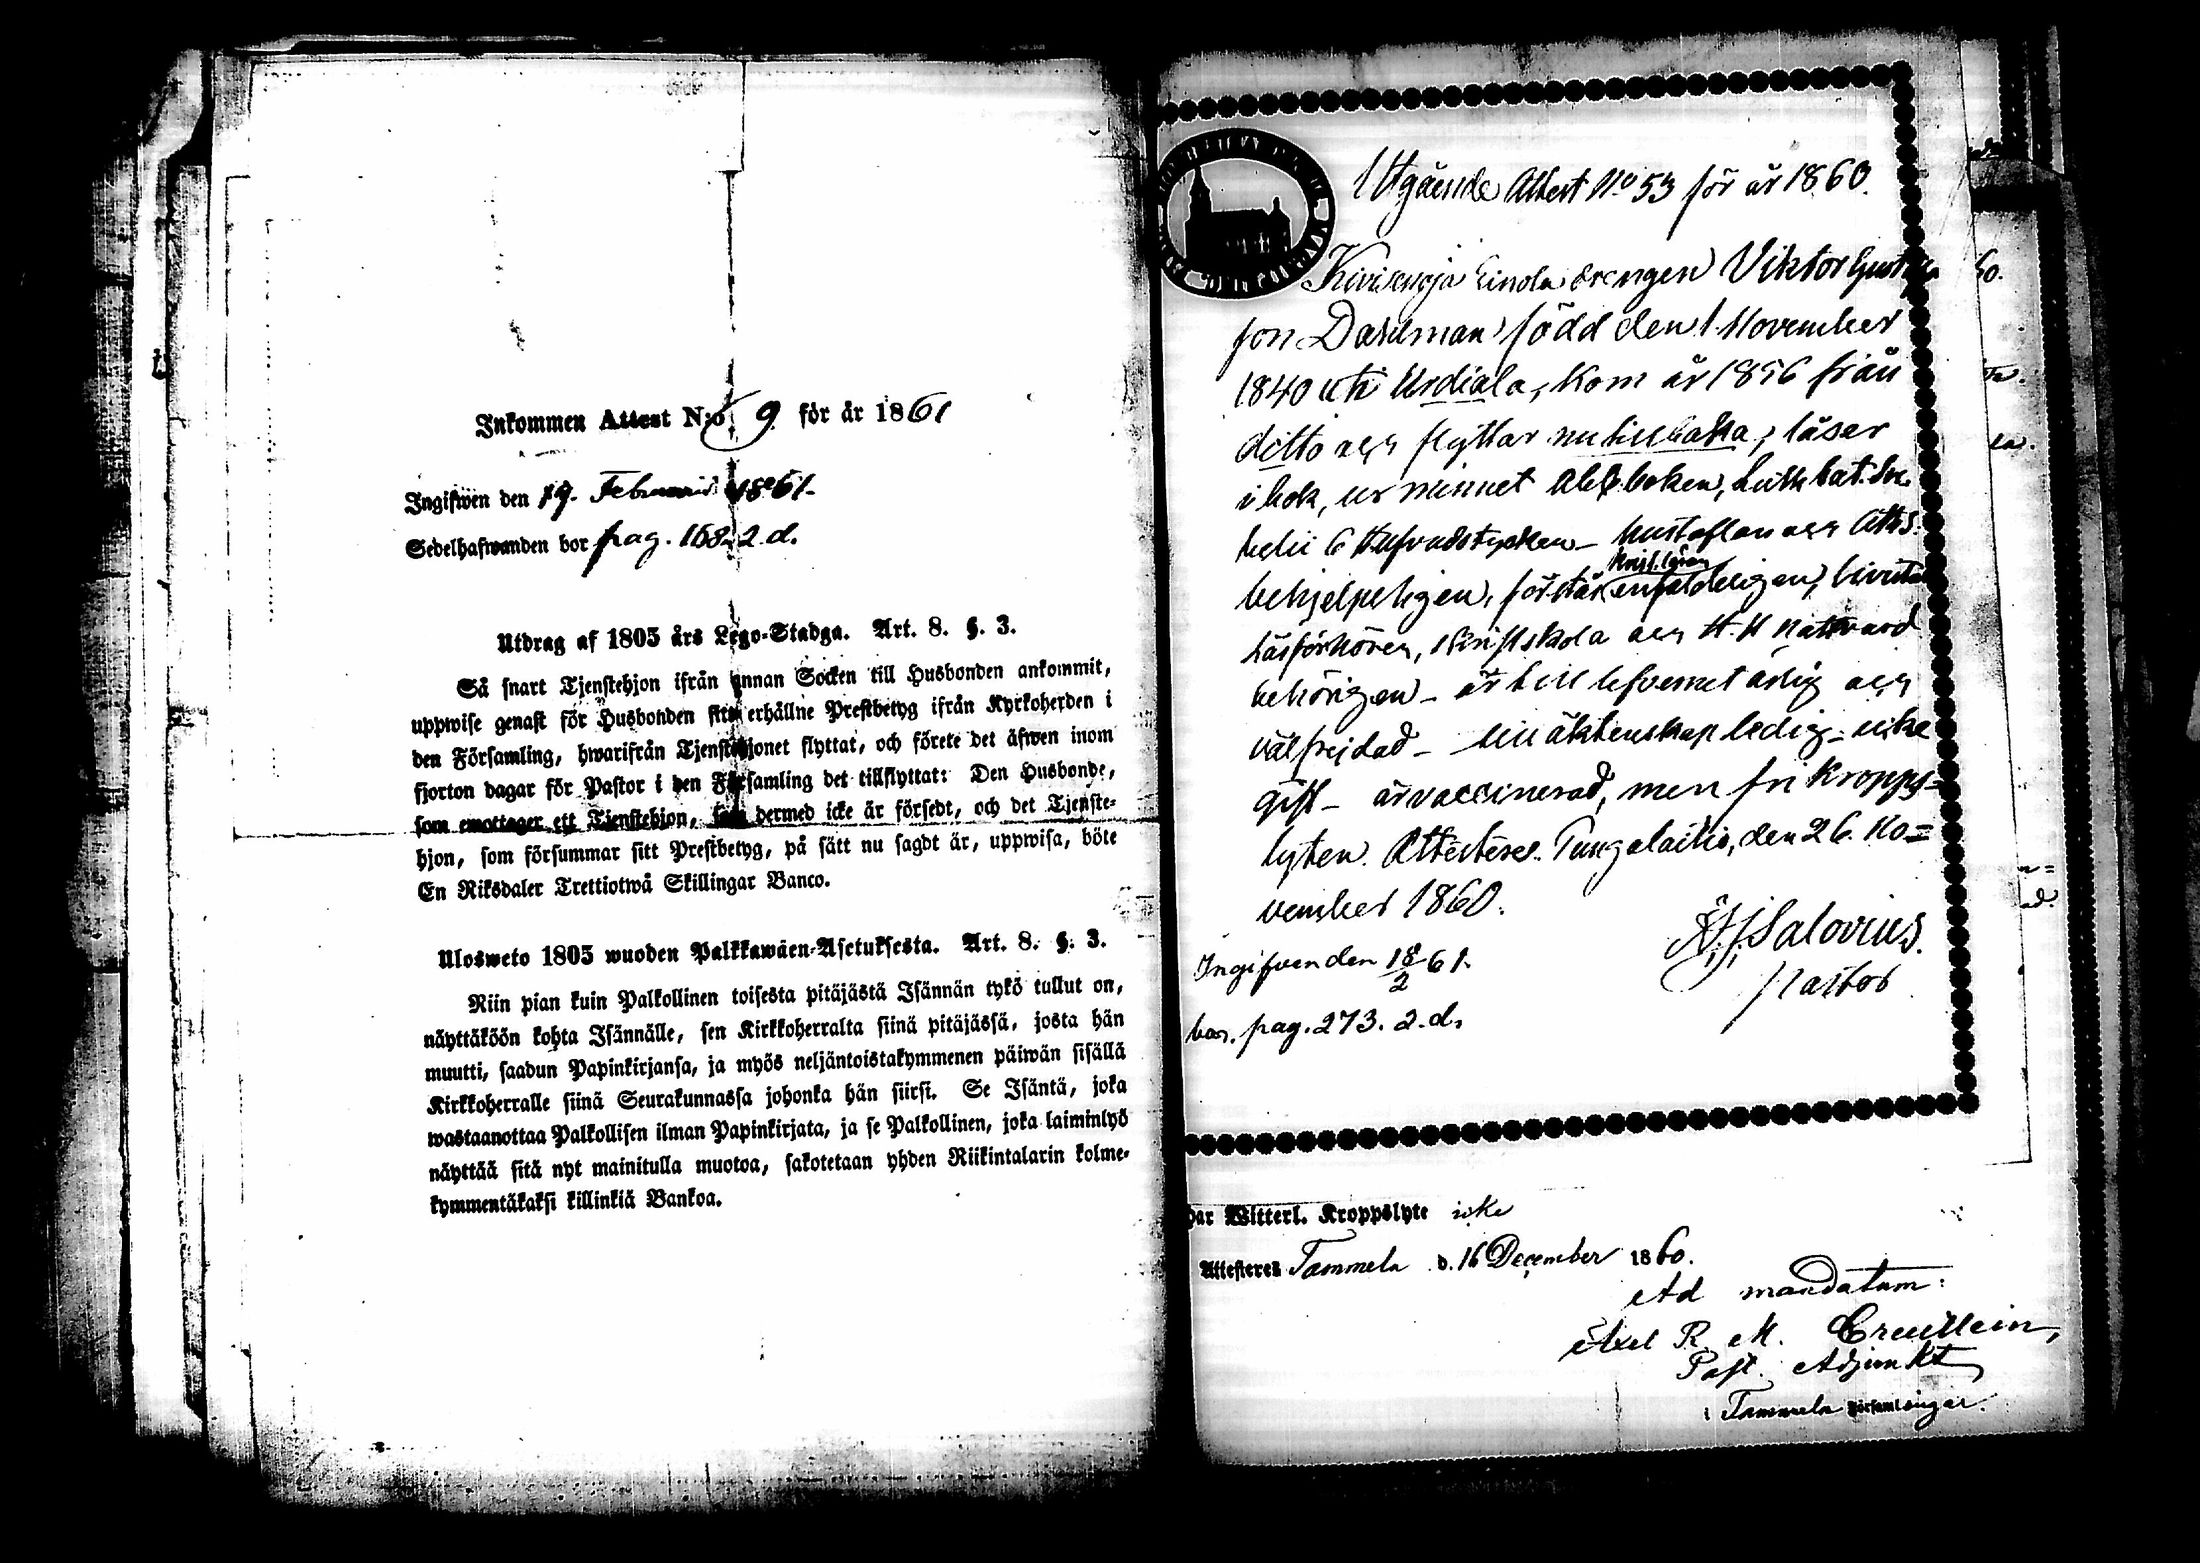 Inkommen Attest N:o 9 för år 1861
Ingifwen den 19. Februarii 1861.
Sedelhafwanden bor pag. 168. 2. d.
Utdrag af 1805 års Lego-Stadga. Art. 8. §. 3.
Så snart Tjenstehjon ifrån annan Socken till Husbonden ankommit,
uppwise genast för Husbonden sitt erhållne Prestbetyg ifrån Kyrkoherden i
den Församling, hwarifrån Tjenstehjonet flyttat, och förete det äfwen inom
fjorton dagar för Pastor i den Församling det tillflyttat: Den Husbonde,
som emottager ett Tjenstehjon, som dermed icke är försedt, och det Tjenste-
hjon, som försummar sitt Prestbetyg, på sätt nu sagdt är, uppwisa, böte
En Riksdaler Trettiotwå Skillingar Banco.
Ulosweto 1805 wuoden Palkkawäen-Asetuksesta. Art. 8. §. 3.
Niin pian kuin Palkollinen toisesta pitäjästä Isännän tykö tullut on,
näyttäköön kohta Isännälle, sen Kirkkoherralta siinä pitäjässä, josta hän
muutti, saadun Papinkirjansa, ja myös neljäntoistakymmenen päiwän sisällä
Kirkkoherralle siinä Seurakunnassa johonka hän siirsi. Se Isäntä, joka
wastaanottaa Palkollisen ilman Papinkirjata, ja se Palkollinen, joka laiminlyö
näyttää sitä nyt mainitulla muotoa, sakotetaan yhden Riikintalarin kolme-
kymmentäkaksi killinkiä Bankoa.
Utgående Attest No 53 för år 1860.
Einola drengen Viktor Gustafs
son Dahlman född den 1 November
1840 uti Urdiala, kom år 1856 från
ditto och flyttar nu tillbaka, läser
i bok, ur minnet Abcboken, Luth. Cat.
6 Hufvudstycken – hustaflan och Aths.
behjelpeligen, förstår enfaldeligen, bivistat
Krist. läran
Läsförhören, skriftskola och H. H. Nattvard
behörigen – är till lefvernet ärlig och
välfrejdad – till äktenskap ledig – icke
gift – är vaccinerad, men fri kropps-
lyten. Attesteres. Tungelaitio, den 26. No=
vember 1860.
Salovius.
Pastor
Ingifven den 18/2 61.
bor. pag. 273. 2. d.
har Witterl. Kroppslyte icke
Attesteres Tammela d. 16 December 1860.
Ad mandatum:
Axel R. M. Creutlein,
Past. Adjunkt
i Tammela församlingar.